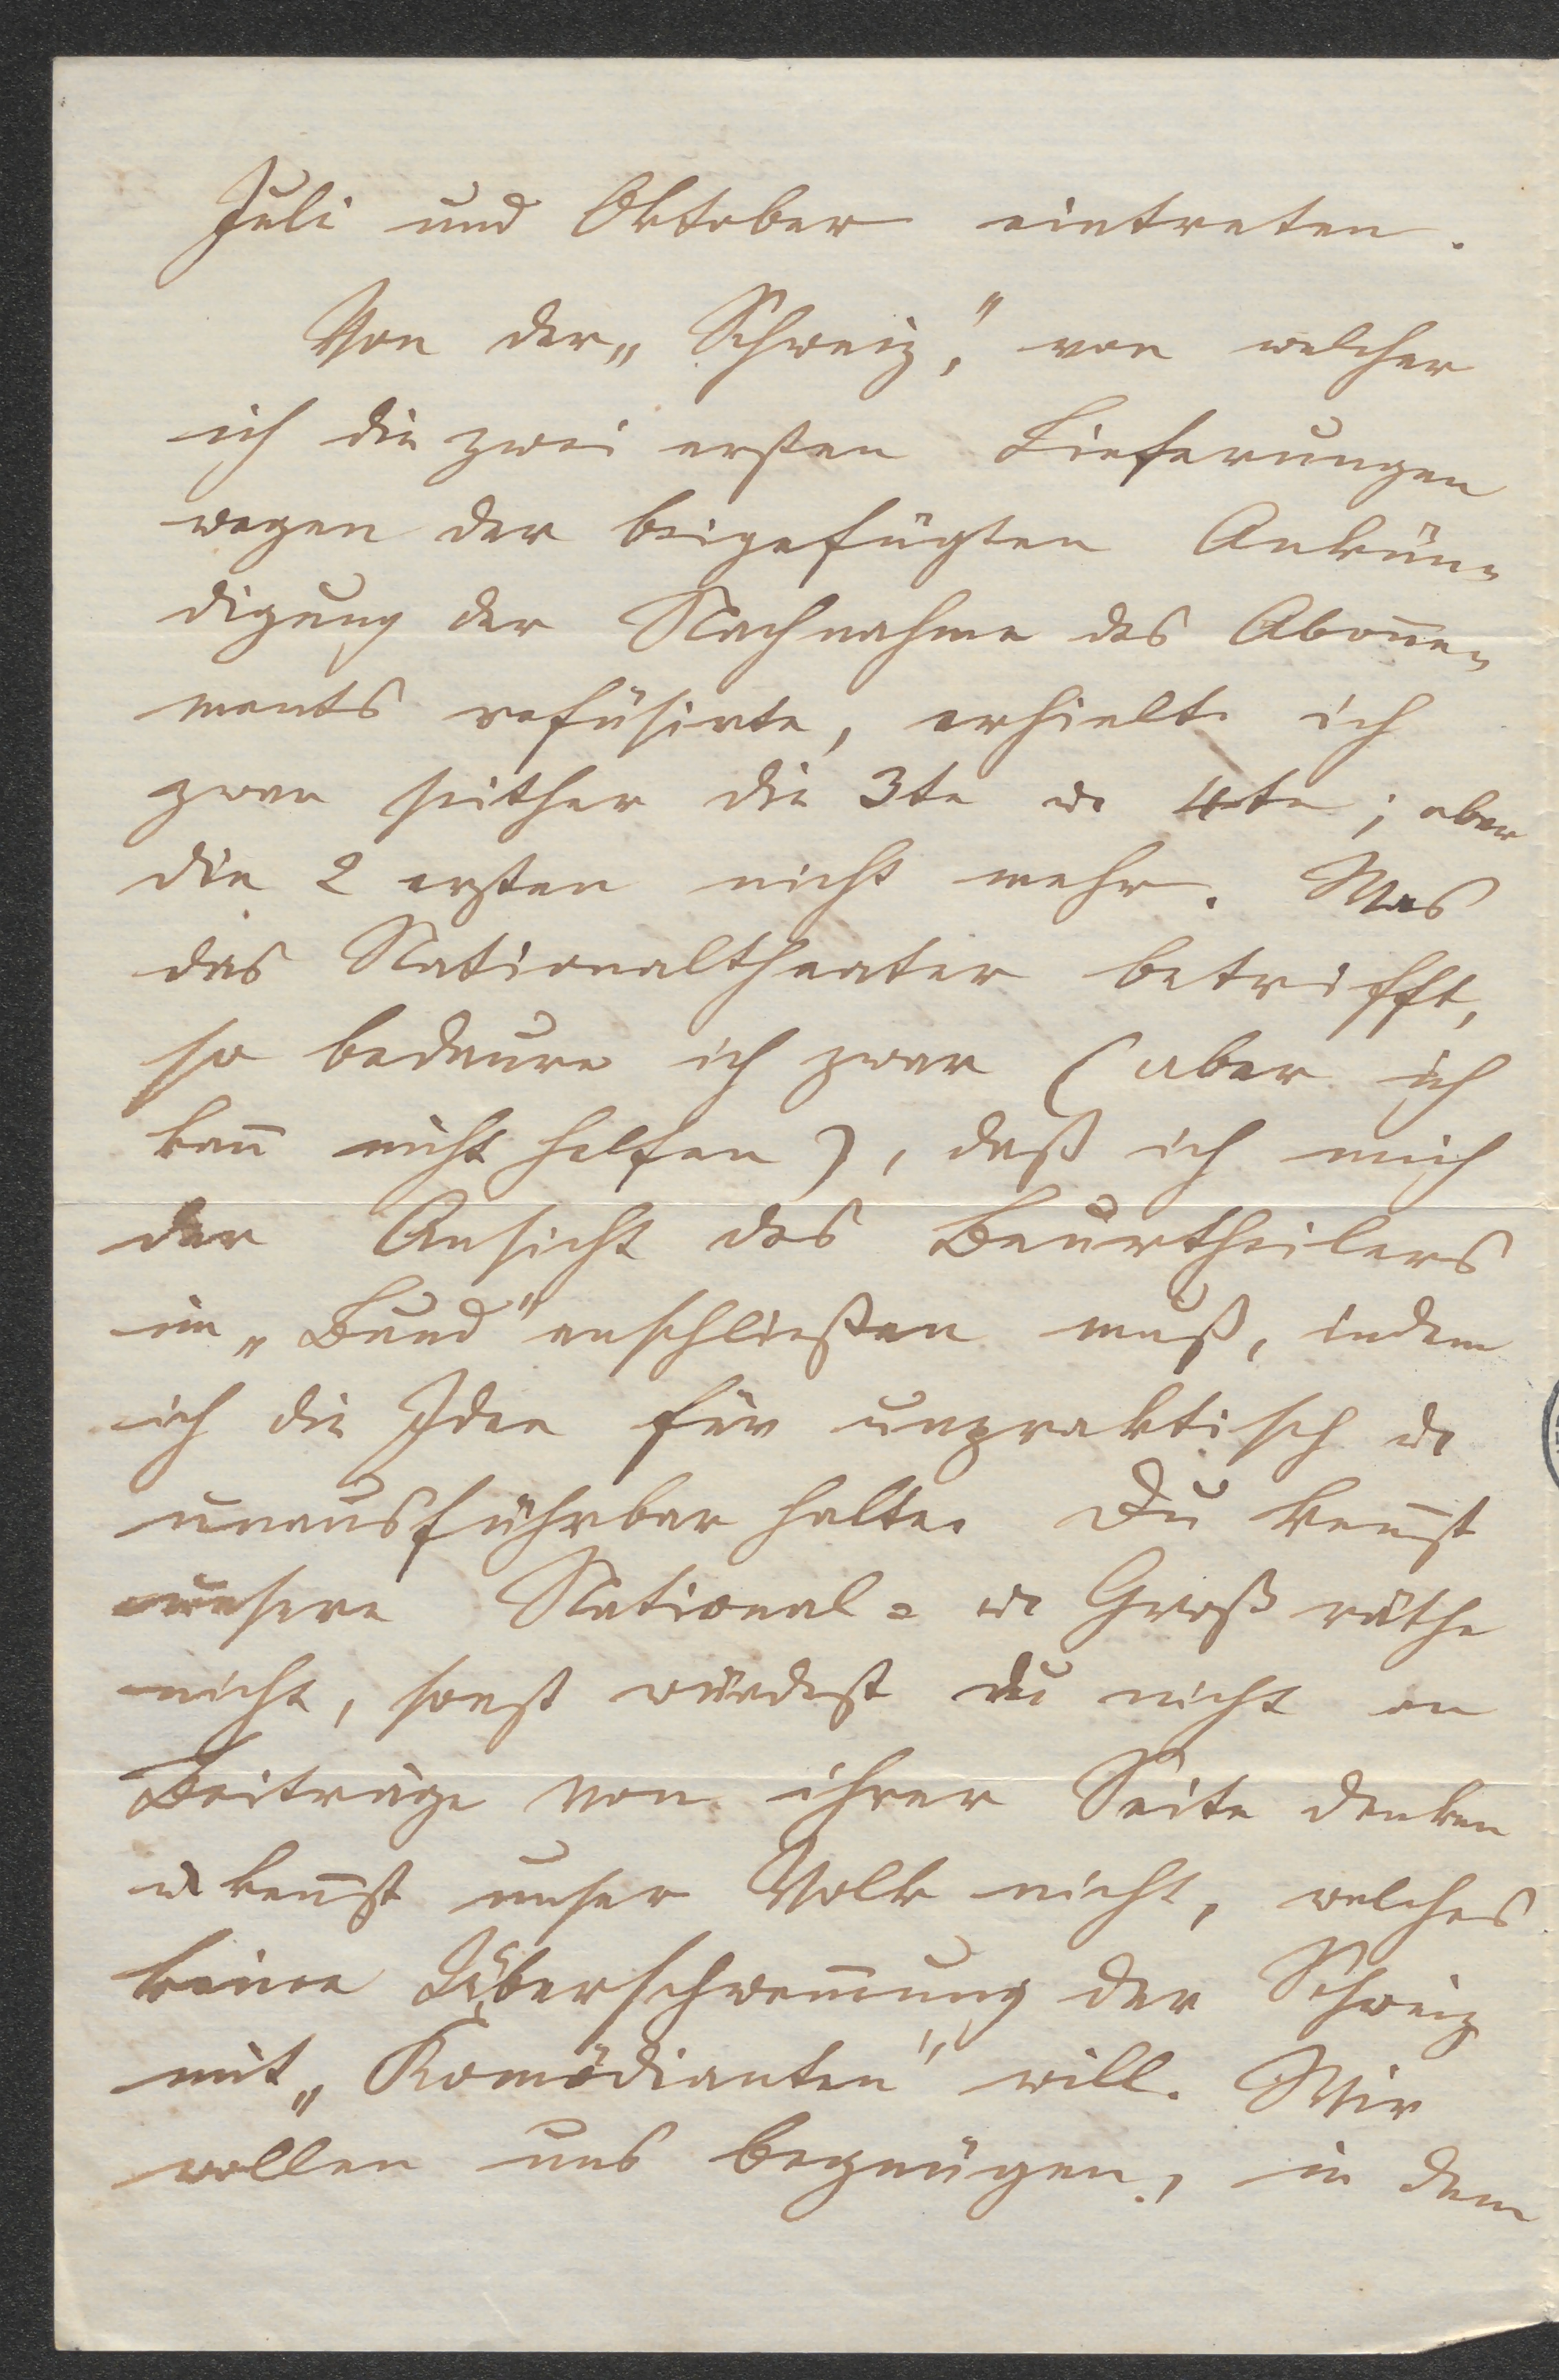 Juli und Oktober eintreten.
Von der „Schweiz“, von welcher
ich die zwei ersten Lieferungen
wegen der beigefügten Ankün-
digung der Nachnahme des Abonne-
ments refüsirte, erhielt ich
zwar seither die 3te u. 4te; aber
die 2 ersten nicht mehr. Was
das Nationaltheater betrifft,
so bedaure ich zwar (aber ich
kann nicht helfen), daß ich mich
der Ansicht des Beurtheilers
im „Bund“ anschließen muß, indem
ich die Idee für unpraktisch u.
unausführbar halte. Du kennst
unsere National- u. Großräthe
nicht, sonst würdest du nicht an
Beiträge von ihrer Seite denken
u. kennst unser Volk nicht, welches
keine Überschwemmung der Schweiz
mit „Komödianten“ will. Wir
wollen uns begnügen, in dem